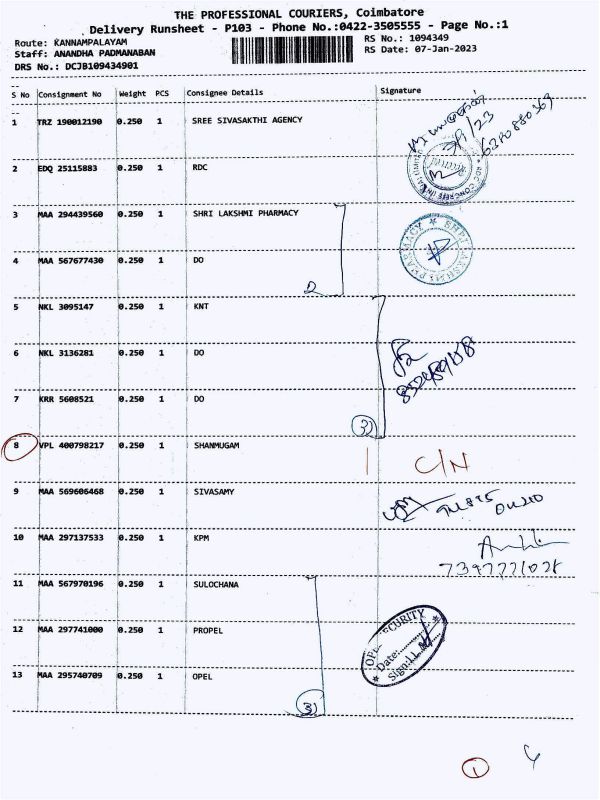 THE PROFESSIONAL COURIERS, Coimbatore
Delivery Runsheet - P103 - Phone No.:0422-3505555 - Page No.:1
Route: KANNAMPALAYAM
RS No.: 1094349
Staff: ANANDHA PADMANABAN
RS Date: 07-Jan-2023
DRS No.: DCJB109434901
S No Consignment No Weight PCS Consignee Details Signature
1 TRZ 190012190 0.250 1 SREE SIVASAKTHI AGENCY
2 EDQ 25115883 0.250 1 RDC
3 MAA 294439560 0.250 1 SHRI LAKSHMI PHARMACY
SHRI LAKSHMI PHARMACY
4 MAA 567677430 0.250 1 DO
2
5 NKL 3095147 0.250 1 KNT
6 NKL 3136281 0.250 1 DO
7 KRR 5608521 0.250 1 DO
3
8 VPL 400798217 0.250 1 SHANMUGAM
1 C/N
9 MAA 569606468 0.250 1 SIVASAMY
10 MAA 297137533 0.250 1 KPM
11 MAA 567970196 0.250 1 SULOCHANA
12 MAA 297741000 0.250 1 PROPEL
SECURITY
Date:
Sign:
13 MAA 295740709 0.250 1 OPEL
3
1